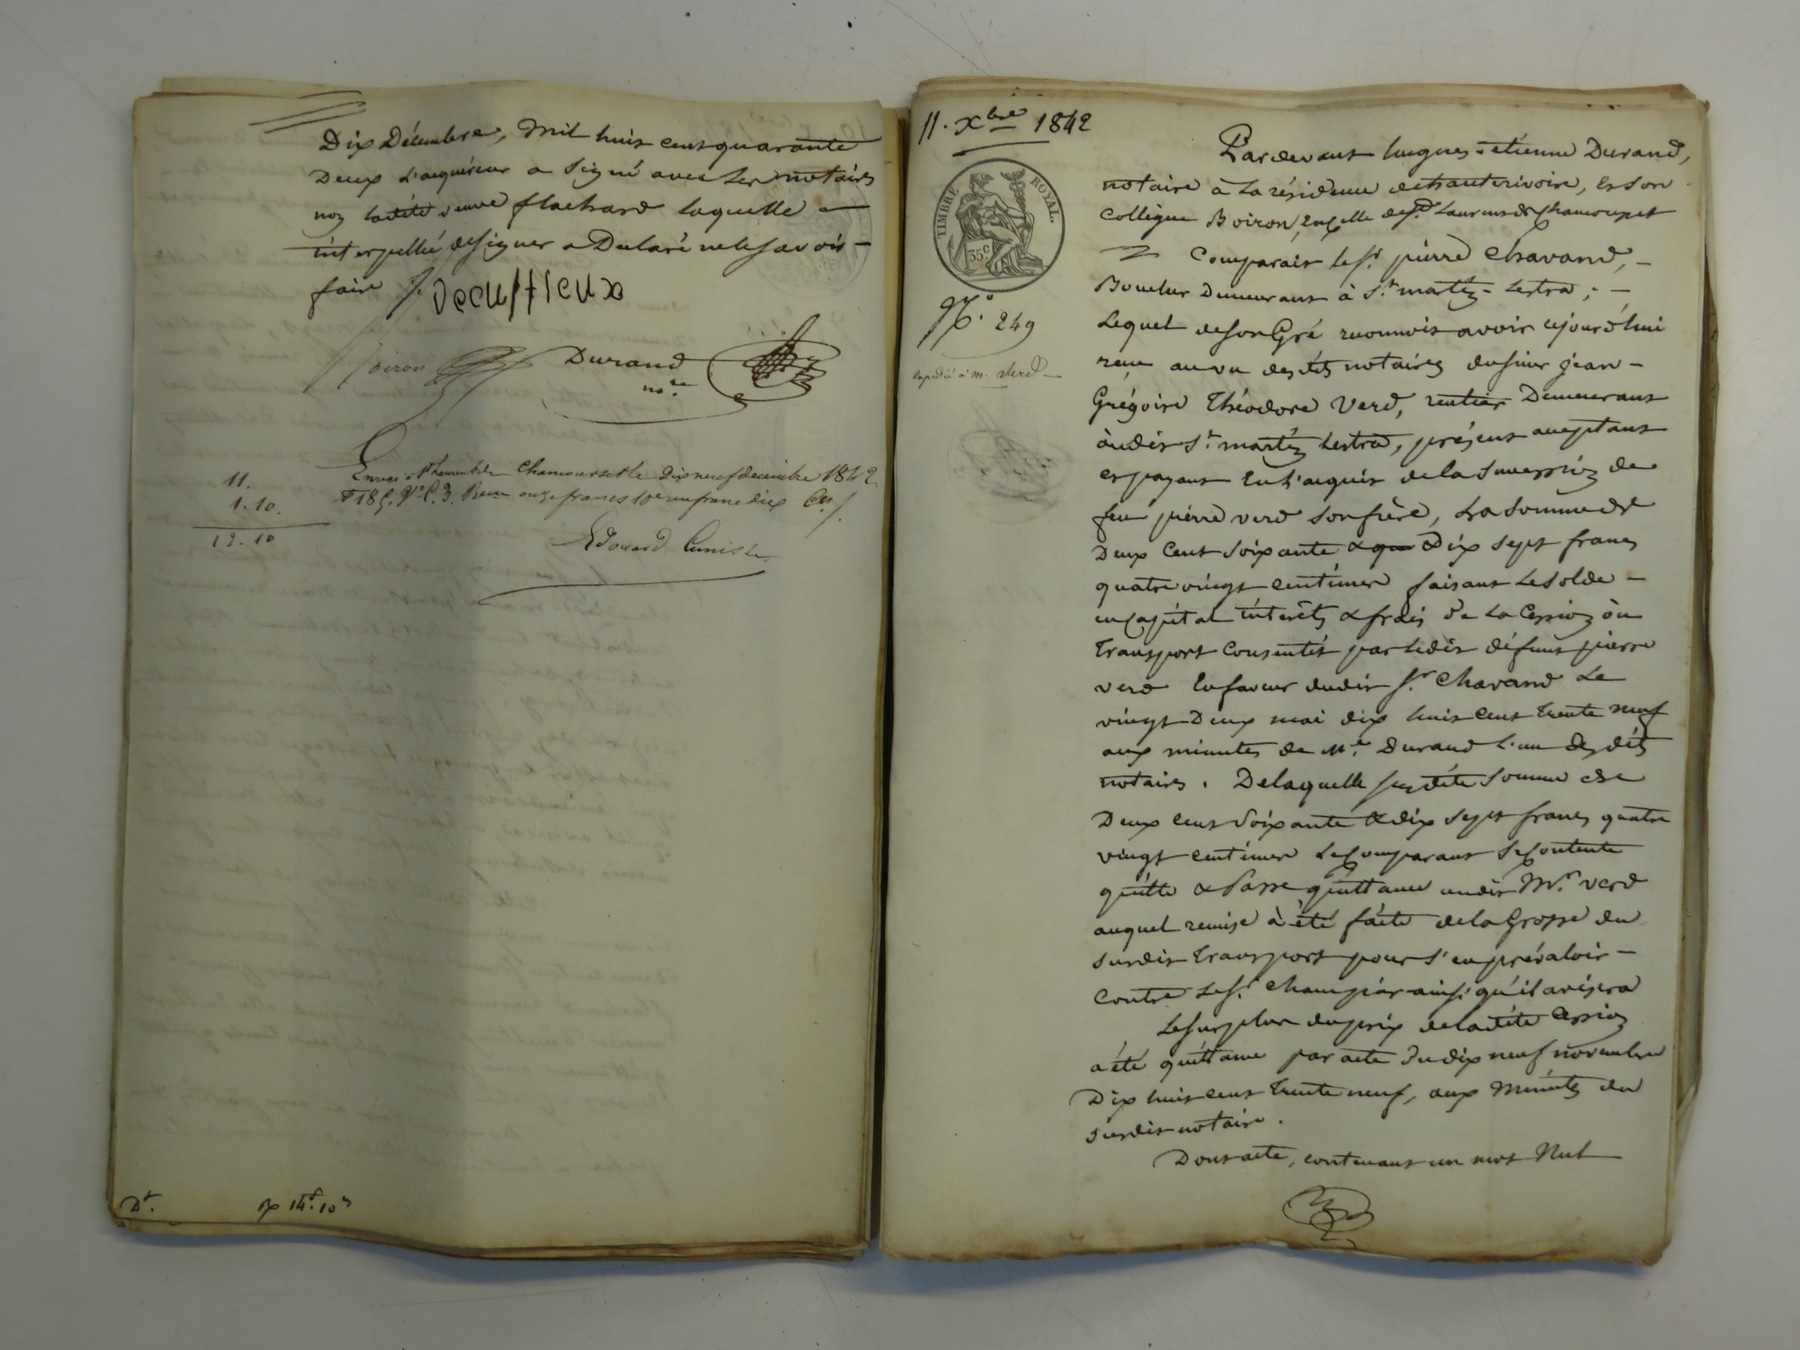 Dix Décembre, Mil huit cent quarante
Deux L'acquéreur a Signé avec Les notaires
non ladite veuve flachard laquelle a
interpellée de signer a Déclaré ne le Savoir
faire
Boiron Durand
no.re
Enreg. à St Laurent de Chamousset le dix neuf decembre 1842
f° 18 Reçu onze francs 10e un franc dix Ces
11.
1. 10.
12. 10
Edouard
Dt. 14f. 10c
11. Xbre 1842
TIMBRE ROYAL.
35c
No. 249
expédié à M. Verd
Pardevant hugues-étienne Durand,
notaire à La résidence de hauterivoire, et Son
Collègue Boiron, de St. Laurent de Chamousset
Comparait Le Sr. pierre Chavand,
Boucher Demeurant à St. martin-Lestra;
Lequel de Son Gré reconnoit avoir cejourd'hui
reçu au vu desdits notaires du sieur jean-
Grégoire Théodore Verd, rentier Demeurant
audit St. martin Lestra, présent acceptant
et payant En l'acquit de la Succession de
feu pierre verd Son frère, La Somme de
Deux Cent Soixante & Dix sept francs
quatre vingt centimes faisant Le Solde
en capital intérêts & frais de La Cession ou
Transport Consentis par Ledit défunt pierre
verd En faveur dudit Sr. Chavand Le
vingt Deux mai dix huit cent trente neuf
aux minutes de Me. Durand L'un desdits
notaires. De laquelle susdite Somme de
Deux cent Soixante & dix sept francs quatre
vingt centimes Le Comparant Se Contente
quitte & Passe quittance audit Mr. verd
auquel remise à été faite de la Grosse du
susdit transport pour S'en prévaloir
Contre Le Sr. Champiar ainsi qu'il avisera
Le Surplus du prix de ladite Cession
a été quittancé par acte du dix neuf novembre
Dix huit cent trente neuf, aux Minutes du
susdit notaire.
Dont acte, contenant un mot Nul